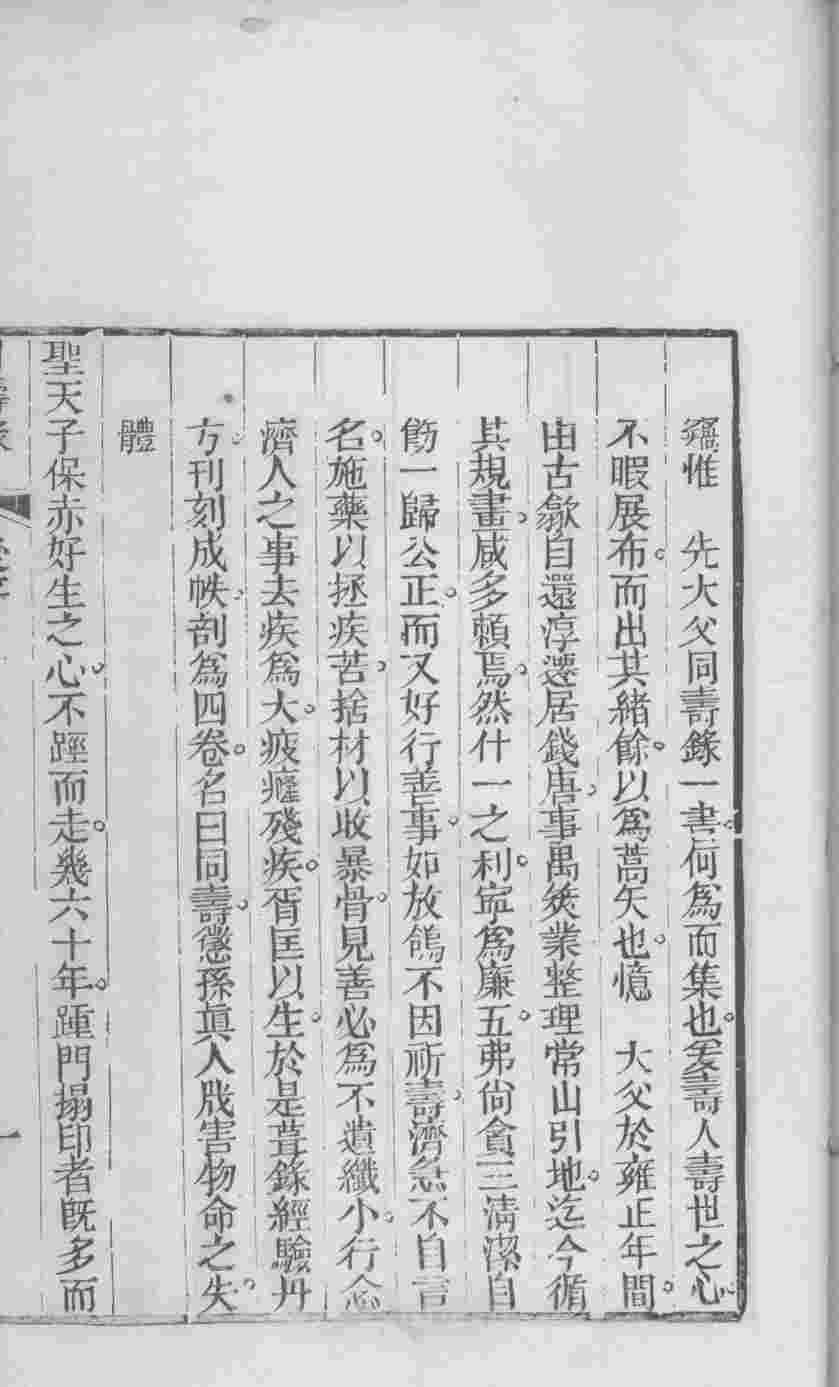 竊惟　先大父同壽錄一書。何爲而集也。爰壽人壽世之心。
不暇展布。而出其緒餘。以爲蒿矢也。憶　大父於雍正年間。
由古歙自還淳遷居錢唐。事禺筴業整理常山引地。迄今循
其規畫。咸多賴焉。然什一之利。寧爲廉五。弗尙貪三。淸潔自
飭。一歸公正。而又好行善事。如放鴿不因祈壽。濟急不自言
名。施藥以拯疾苦。捨材以收暴骨。見善必爲。不遺纖小。行念
濟人之事。去疾爲大。疲癃殘疾。胥匡以生。於是葺錄經驗丹
方。刊刻成帙。剖爲四卷。名曰同壽。懲孫眞人戕害物命之失。
體
聖天子保赤好生之心。不踁而走。幾六十年。踵門搨印者旣多。而
同壽錄
一